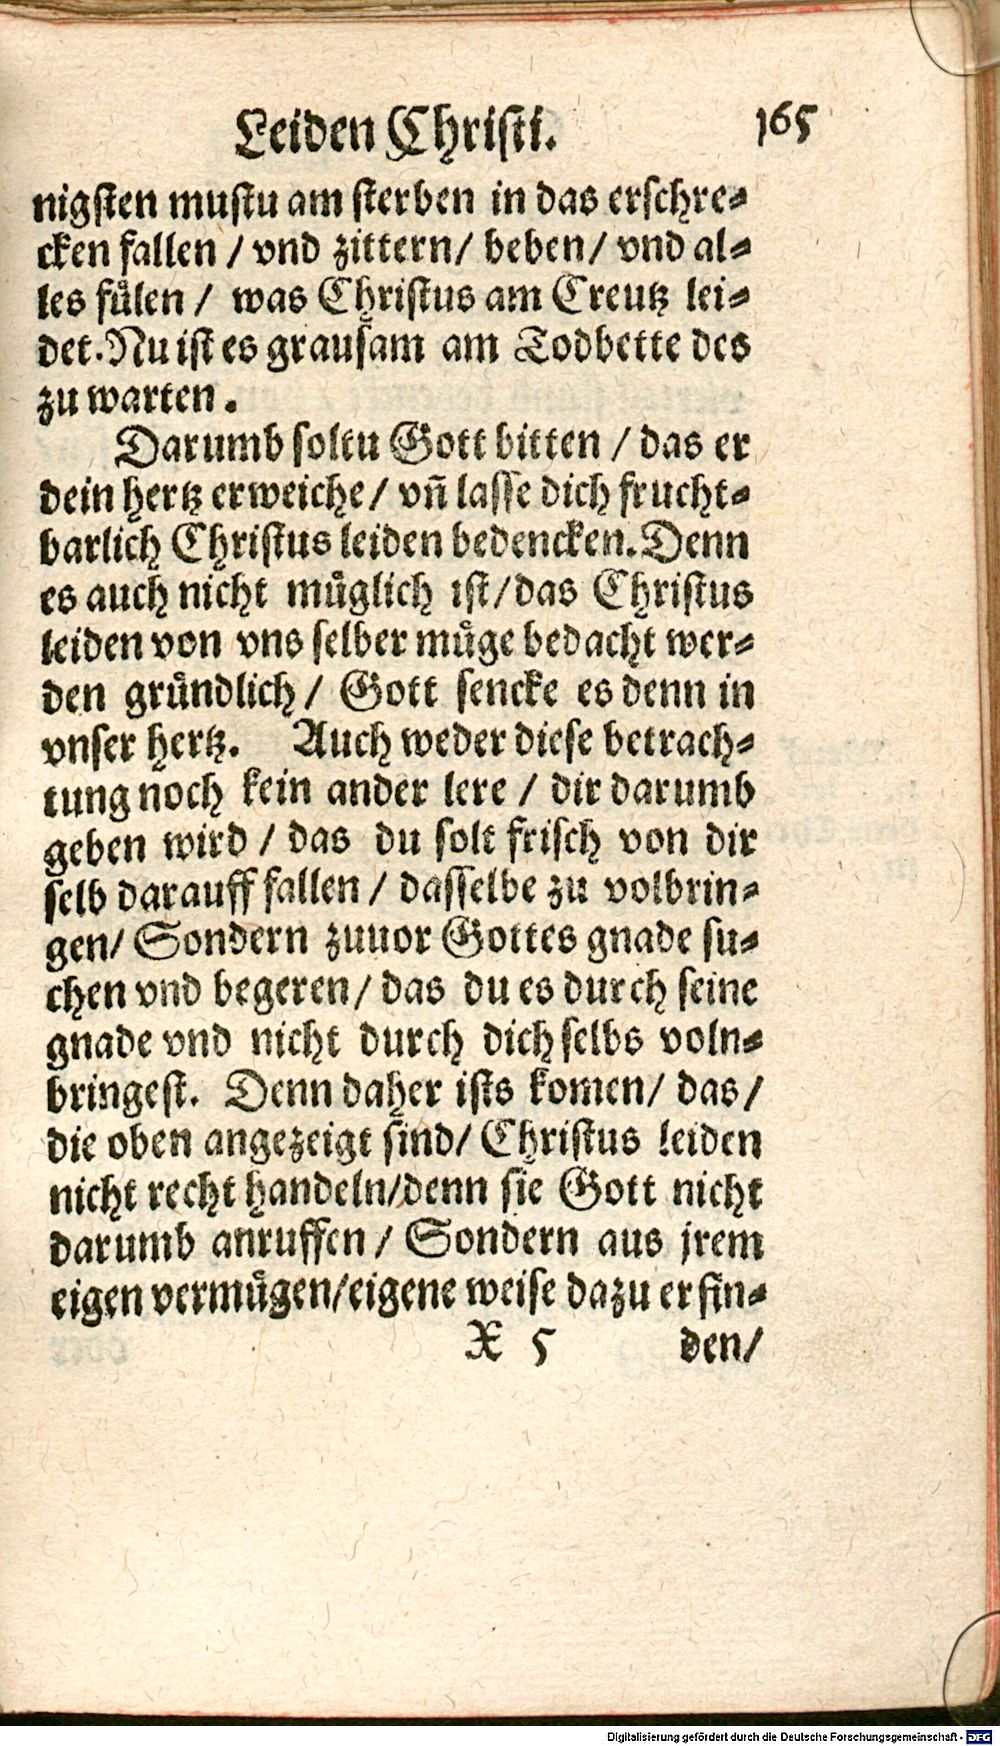 Leiden Christi. 165
nigsten mustu am sterben in das erschre-
cken fallen / vnd zittern / beben / vnd al-
les fülen / was Christus am Creutz lei-
det. Nu ist es grausam am Todbette des
zu warten.
Darumb soltu Gott bitten / das er
dein hertz erweiche / vñ lasse dich frucht-
barlich Christus leiden bedencken. Denn
es auch nicht müglich ist / das Christus
leiden von vns selber müge bedacht wer-
den gründlich / Gott sencke es denn in
vnser hertz. Auch weder diese betrach-
tung noch kein ander lere / dir darumb
geben wird / das du solt frisch von dir
selb darauff fallen / dasselbe zu volbrin-
gen / Sondern zuuor Gottes gnade su-
chen vnd begeren / das du es durch seine
gnade vnd nicht durch dich selbs voln-
bringest. Denn daher ists komen / das /
die oben angezeigt sind / Christus leiden
nicht recht handeln / denn sie Gott nicht
darumb anruffen / Sondern aus jrem
eigen vermügen / eigene weise dazu erfin-
X 5 den /
Digitalisierung gefördert durch die Deutsche Forschungsgemeinschaft - DFG